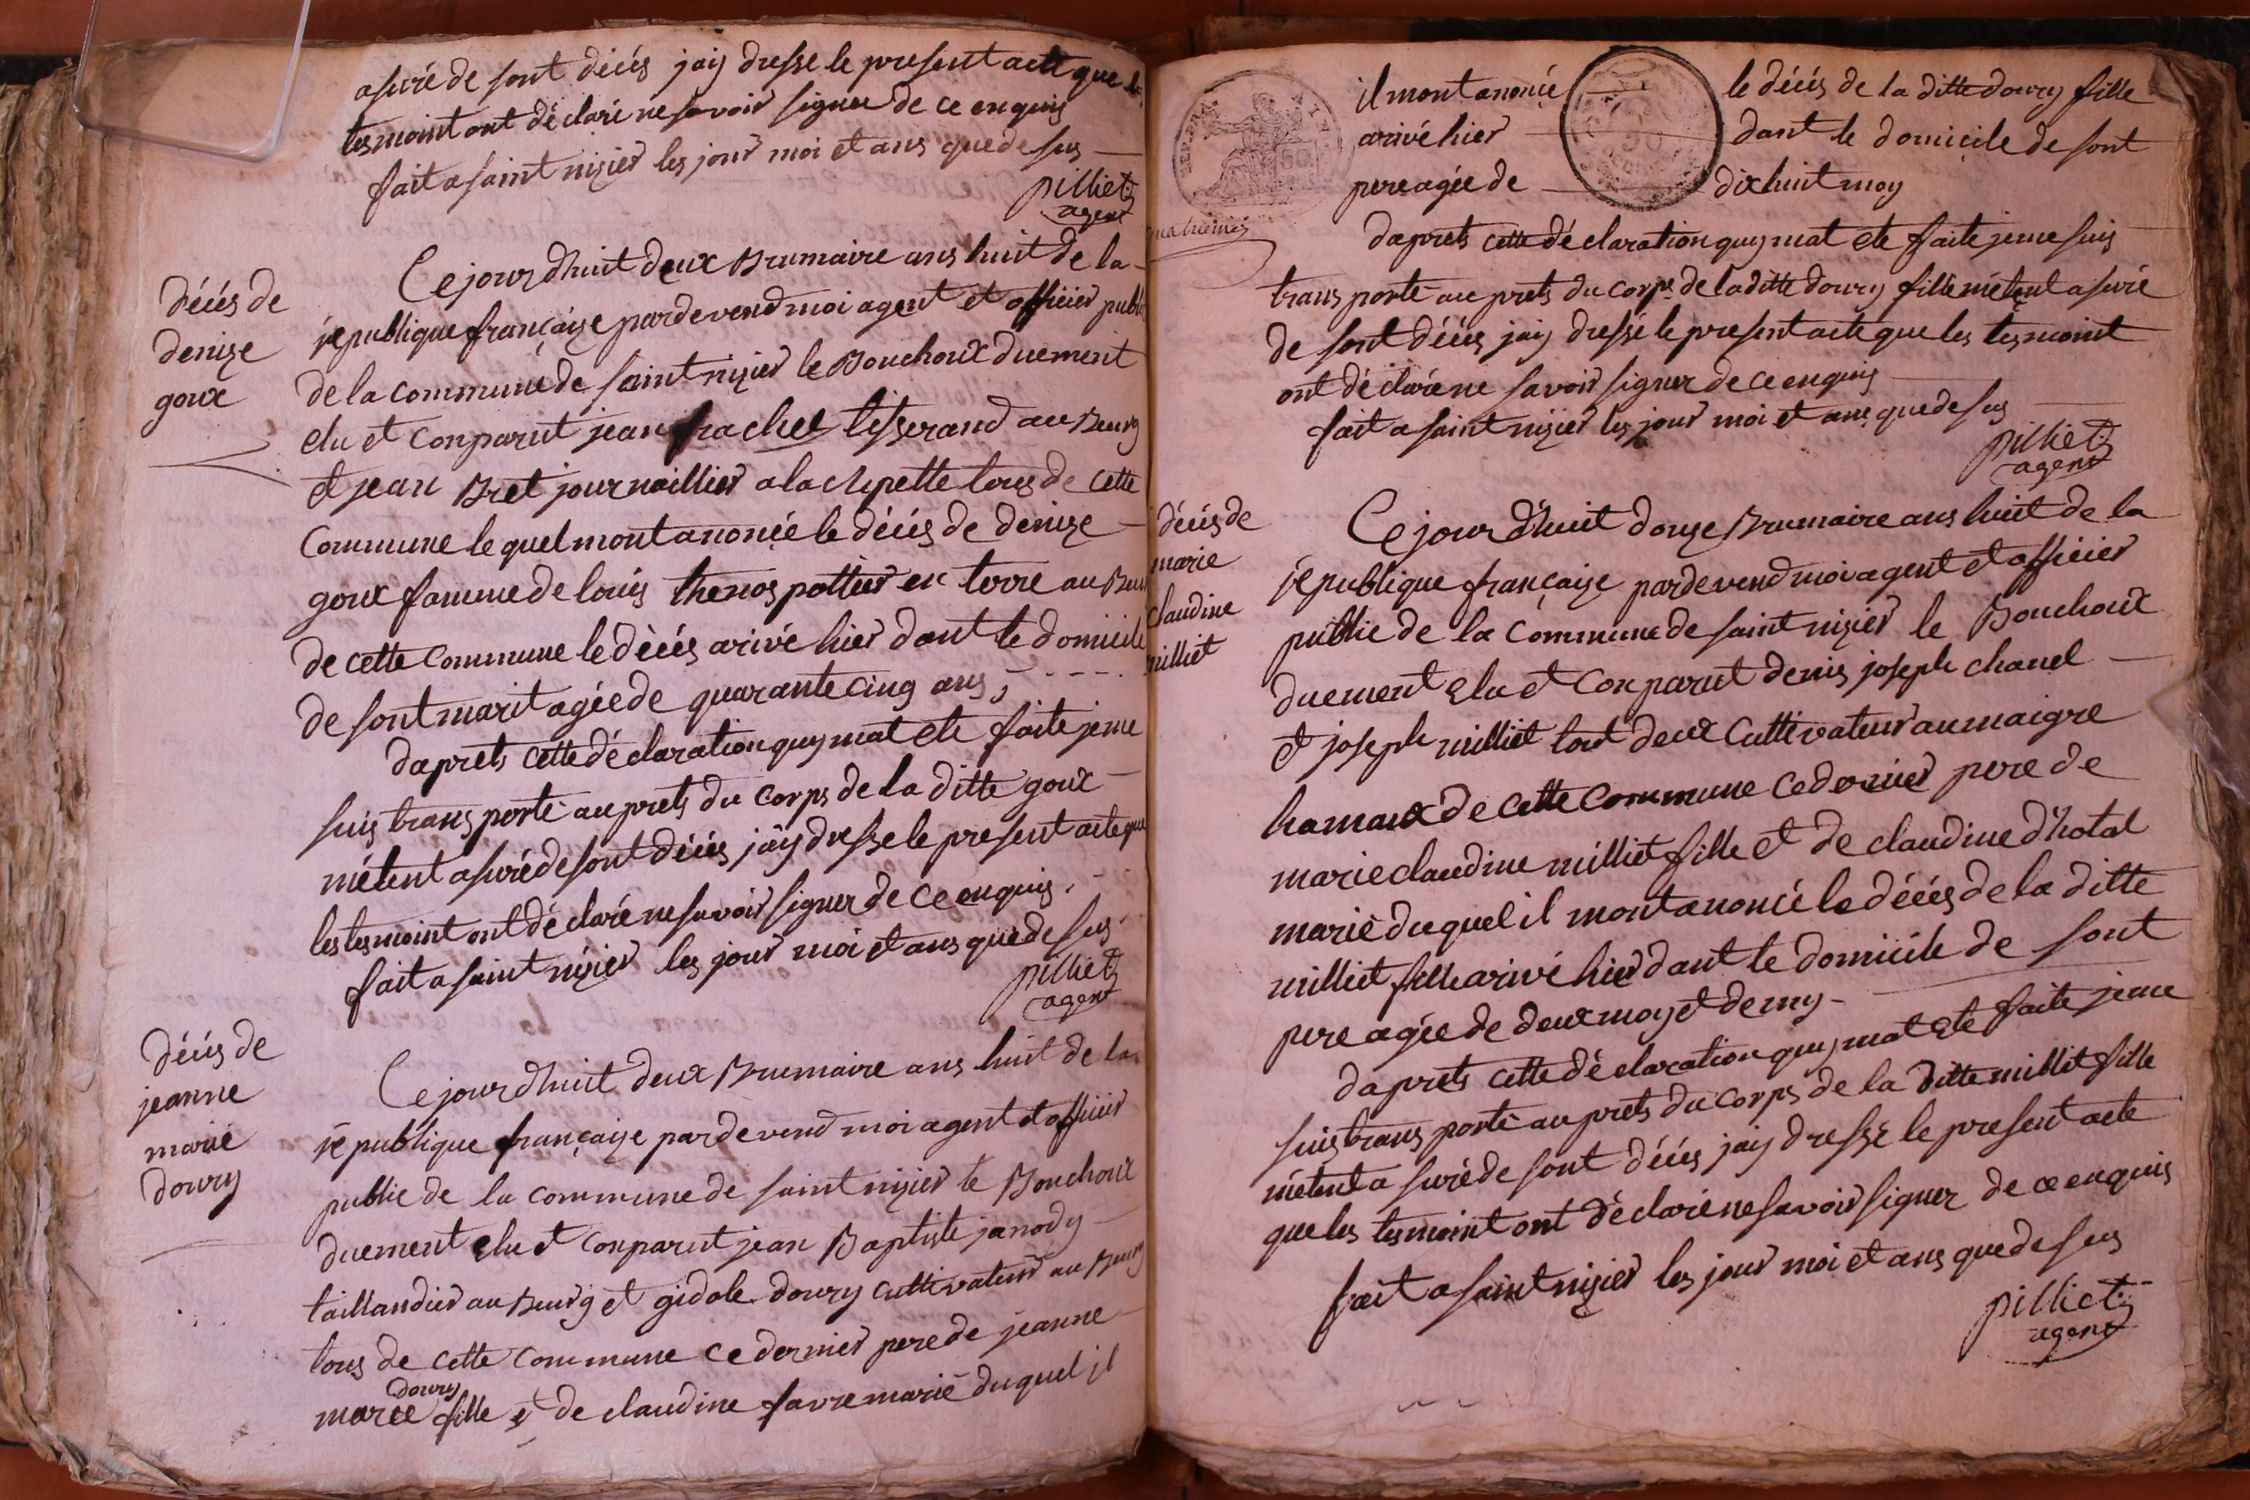 asuré de sont décés jay dresse le present acte que les
tesmoint ont déclaré ne savoir signer de ce enquis
fait a saint nizier les jour moi et ans que de sus
pilliet
agent
décés de
denize
goux
Ce jour dhuit deux Brumaire ans huit de la
république françaize pardevend moi agent et officier public
de la commune de saint nizier le Bouchoux duement
elu et conparut jean frachet tisserand au Bourg
et jean Bret journaillier a la Chpette tous de cette
commune le quel mont anoncé le décés de denize
goux famme de louis thenos pottier en terre au Bour
de cette commune le décés arivé hier dant le domicile
de sont marit agée de quarante cinq ans
daprets cette déclaration quy mat ete faite je me
suis trans porté au prets du corps de la ditte goux
métent asuré de sont décés jay dresse le present acte que
les tesmoint ont déclaré ne savoir signer de ce enquis
fait a saint nizier les jour moi et ans que de sus
pilliet
agent
décés de
jeanne
marie
doury
Ce jour dhuit deux Brumaire ans huit de la
république françaize pardevend moi agent et officier
public de la commune de saint nizier le Bouchoux
duement elu et conparut jean Baptiste janody
taillandier au Bourg et gidole doury cultivateur au Bourg
tous de cette commune ce dernier pere de jeanne
doury
marie fille et de claudine favre marié duquel il
il mont anoncé le décés de la ditte doury fille
arivé hier dant le domicile de sont
pere agée de dix huit moy
daprets cette déclaration quy mat ete faite je me suis
trans porté au prets du corps de la ditte doury fille métent asuré
de sont décés jay dressé le present acte que les tesmoint
ont déclaré ne savoir signer de ce enquis
fait a saint nizier les jour moi et ans que de sus
pilliet
agent
décés de
marie
claudine
milliet
Ce jour dhuit douze Brumaire ans huit de la
république françaize pardevend moi agent et officier
public de la commune de saint nizier le Bouchoux
duement elu et conparut denis joseph chanel
et joseph milliet tout deux cultivateur au maigre
hamaux de cette commune ce dernier pere de
marie claudine milliet fille et de claudine d'hotal
marié duquel il mont anoncé le décés de la ditte
milliet fille arivé hier dant le domicile de sont
pere agée de deux moy et demy
daprets cette déclaration quy mat ete faite je me
suis trans porté au prets du corps de la ditte milliet fille
métent a suré de sont décés jay dressé le present acte
que les tesmoint ont déclaré ne savoir signer de ce enquis
fait a saint nizier les jour moi et ans que de sus
pilliet
agent